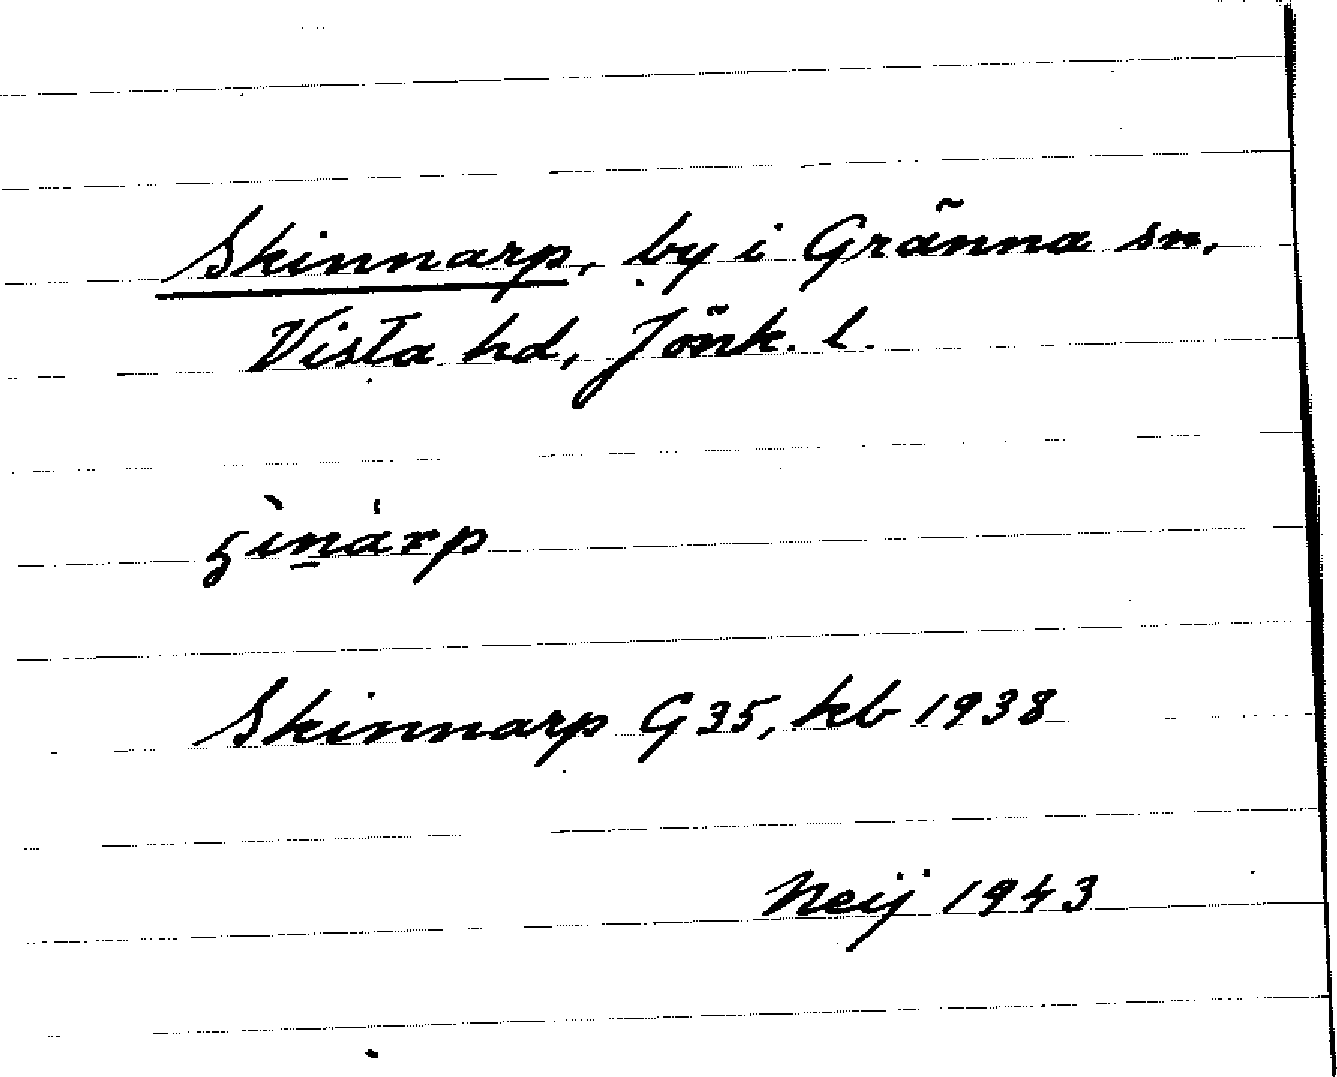 Skinnarp, by i Gränna sn,
Vista hd, Jönk. l.
Skinnarp G 35, kb 1938
Neij 1943